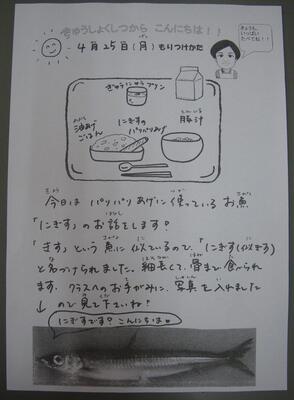 きゅうしょくしつから こんにちは!!
4月25日(月)もりつけかた
きょうも
いっぱい
たべてね!!
ぎゅうにゅうプリン
油あげ
ごはん
にぎすの
パリパリあげ
豚汁
今日は パリパリあげに 使っている お魚
「にぎす」の お話をします!
「きす」という 魚に 似ているので、「にぎす(似ぎす)
と名づけられました。細長くて、骨まで食べられ
ます。クラスへのおてがみに、写真を入れました
ので見て下さいね!
にぎすです?こんにちは。